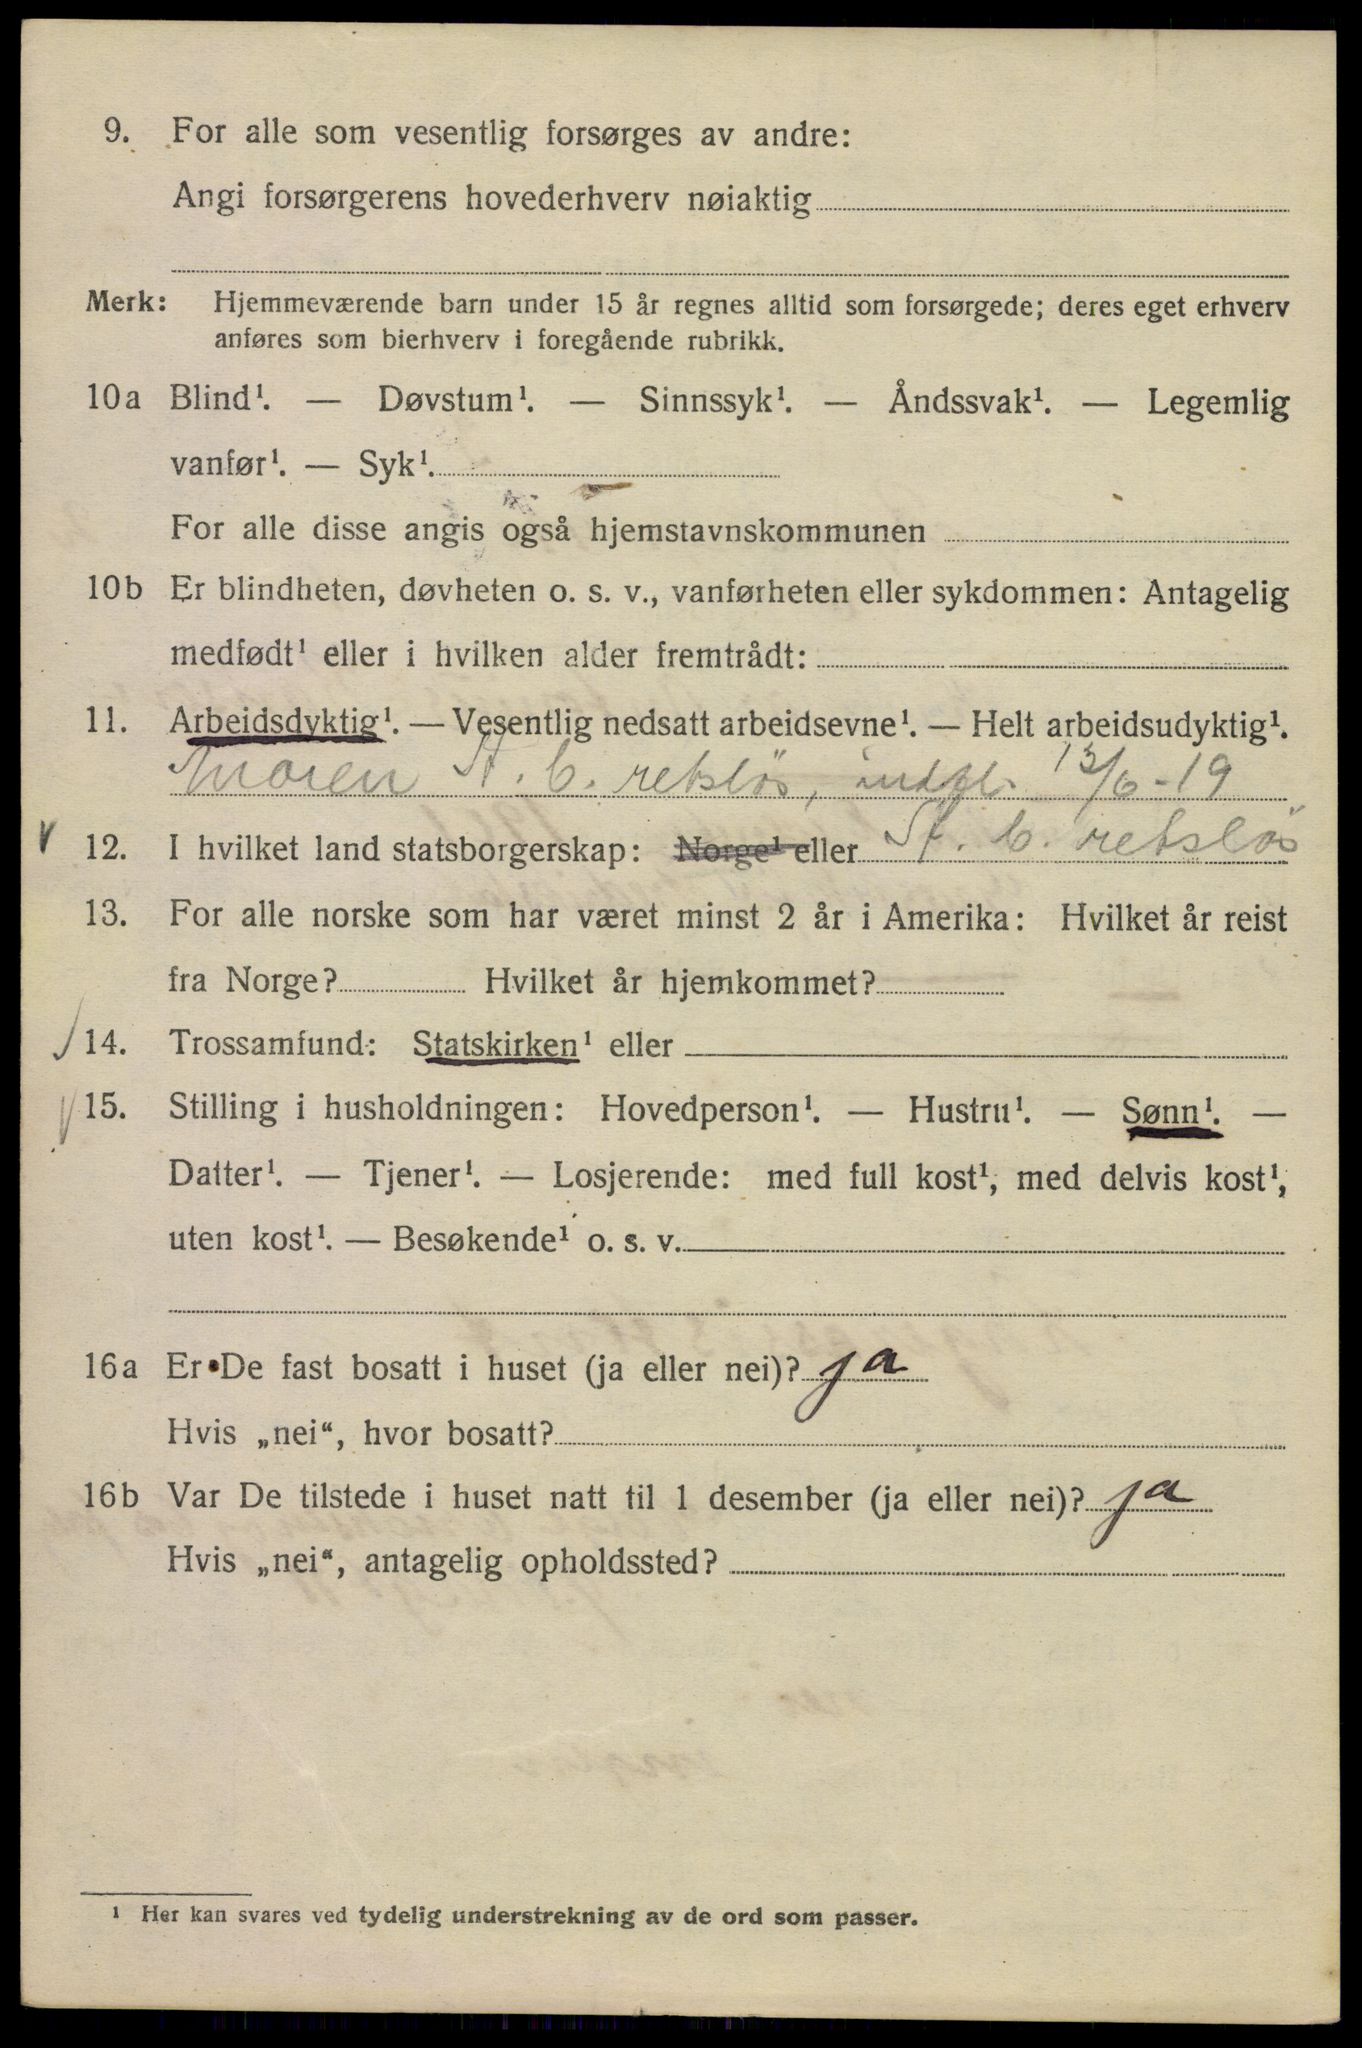 9. For alle som vesentlig forsørges av andre:
Angi forsørgerens hovederhverv nøiaktig
Merk: Hjemmeværende barn under 15 år regnes alltid som forsørgede; deres eget erhverv
anføres som bierhverv i foregående rubrikk.
10a Blind¹. — Døvstum¹. — Sinnssyk¹. — Åndssvak¹. — Legemlig
vanfør¹. — Syk¹.
For alle disse angis også hjemstavnskommunen
10b Er blindheten, døvheten o. s. v., vanførheten eller sykdommen: Antagelig
medfødt¹ eller i hvilken alder fremtrådt:
11. Arbeidsdyktig¹. — Vesentlig nedsatt arbeidsevne¹. — Helt arbeidsudyktig¹.
Moren St. b. retsløs, indfl. 13/6-19
V 12. I hvilket land statsborgerskap: Norge¹ eller St. b. retsløs
13. For alle norske som har været minst 2 år i Amerika: Hvilket år reist
fra Norge? Hvilket år hjemkommet?
14. Trossamfund: Statskirken¹ eller
V 15. Stilling i husholdningen: Hovedperson¹. — Hustru¹. — Sønn¹. —
Datter¹. — Tjener¹. — Losjerende: med full kost¹, med delvis kost¹,
uten kost¹. — Besøkende¹ o. s. v.
16a Er De fast bosatt i huset (ja eller nei)? ja
Hvis „nei“, hvor bosatt?
16b Var De tilstede i huset natt til 1 desember (ja eller nei)? ja
Hvis „nei“, antagelig opholdssted?
¹ Her kan svares ved tydelig understrekning av de ord som passer.